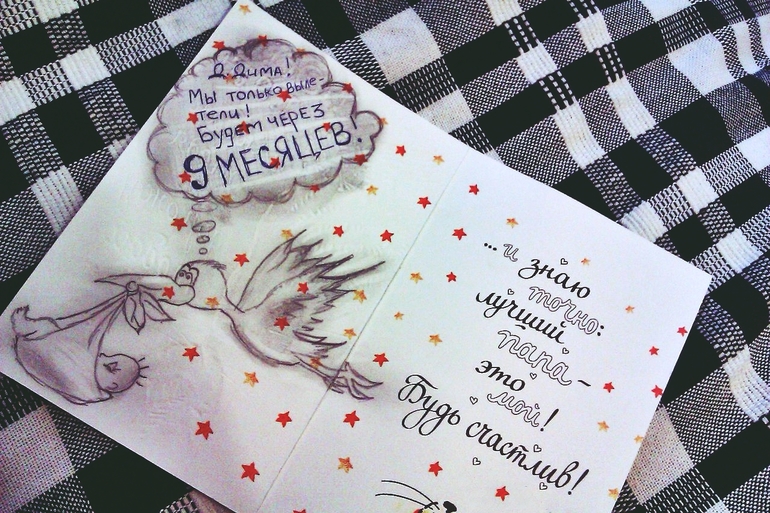 Д. Дима!
Мы только выле-
тели!
Будем через
9 МЕСЯЦЕВ!
...и знаю
точно:
лучший
папа -
это
мой!
Будь счастлив!